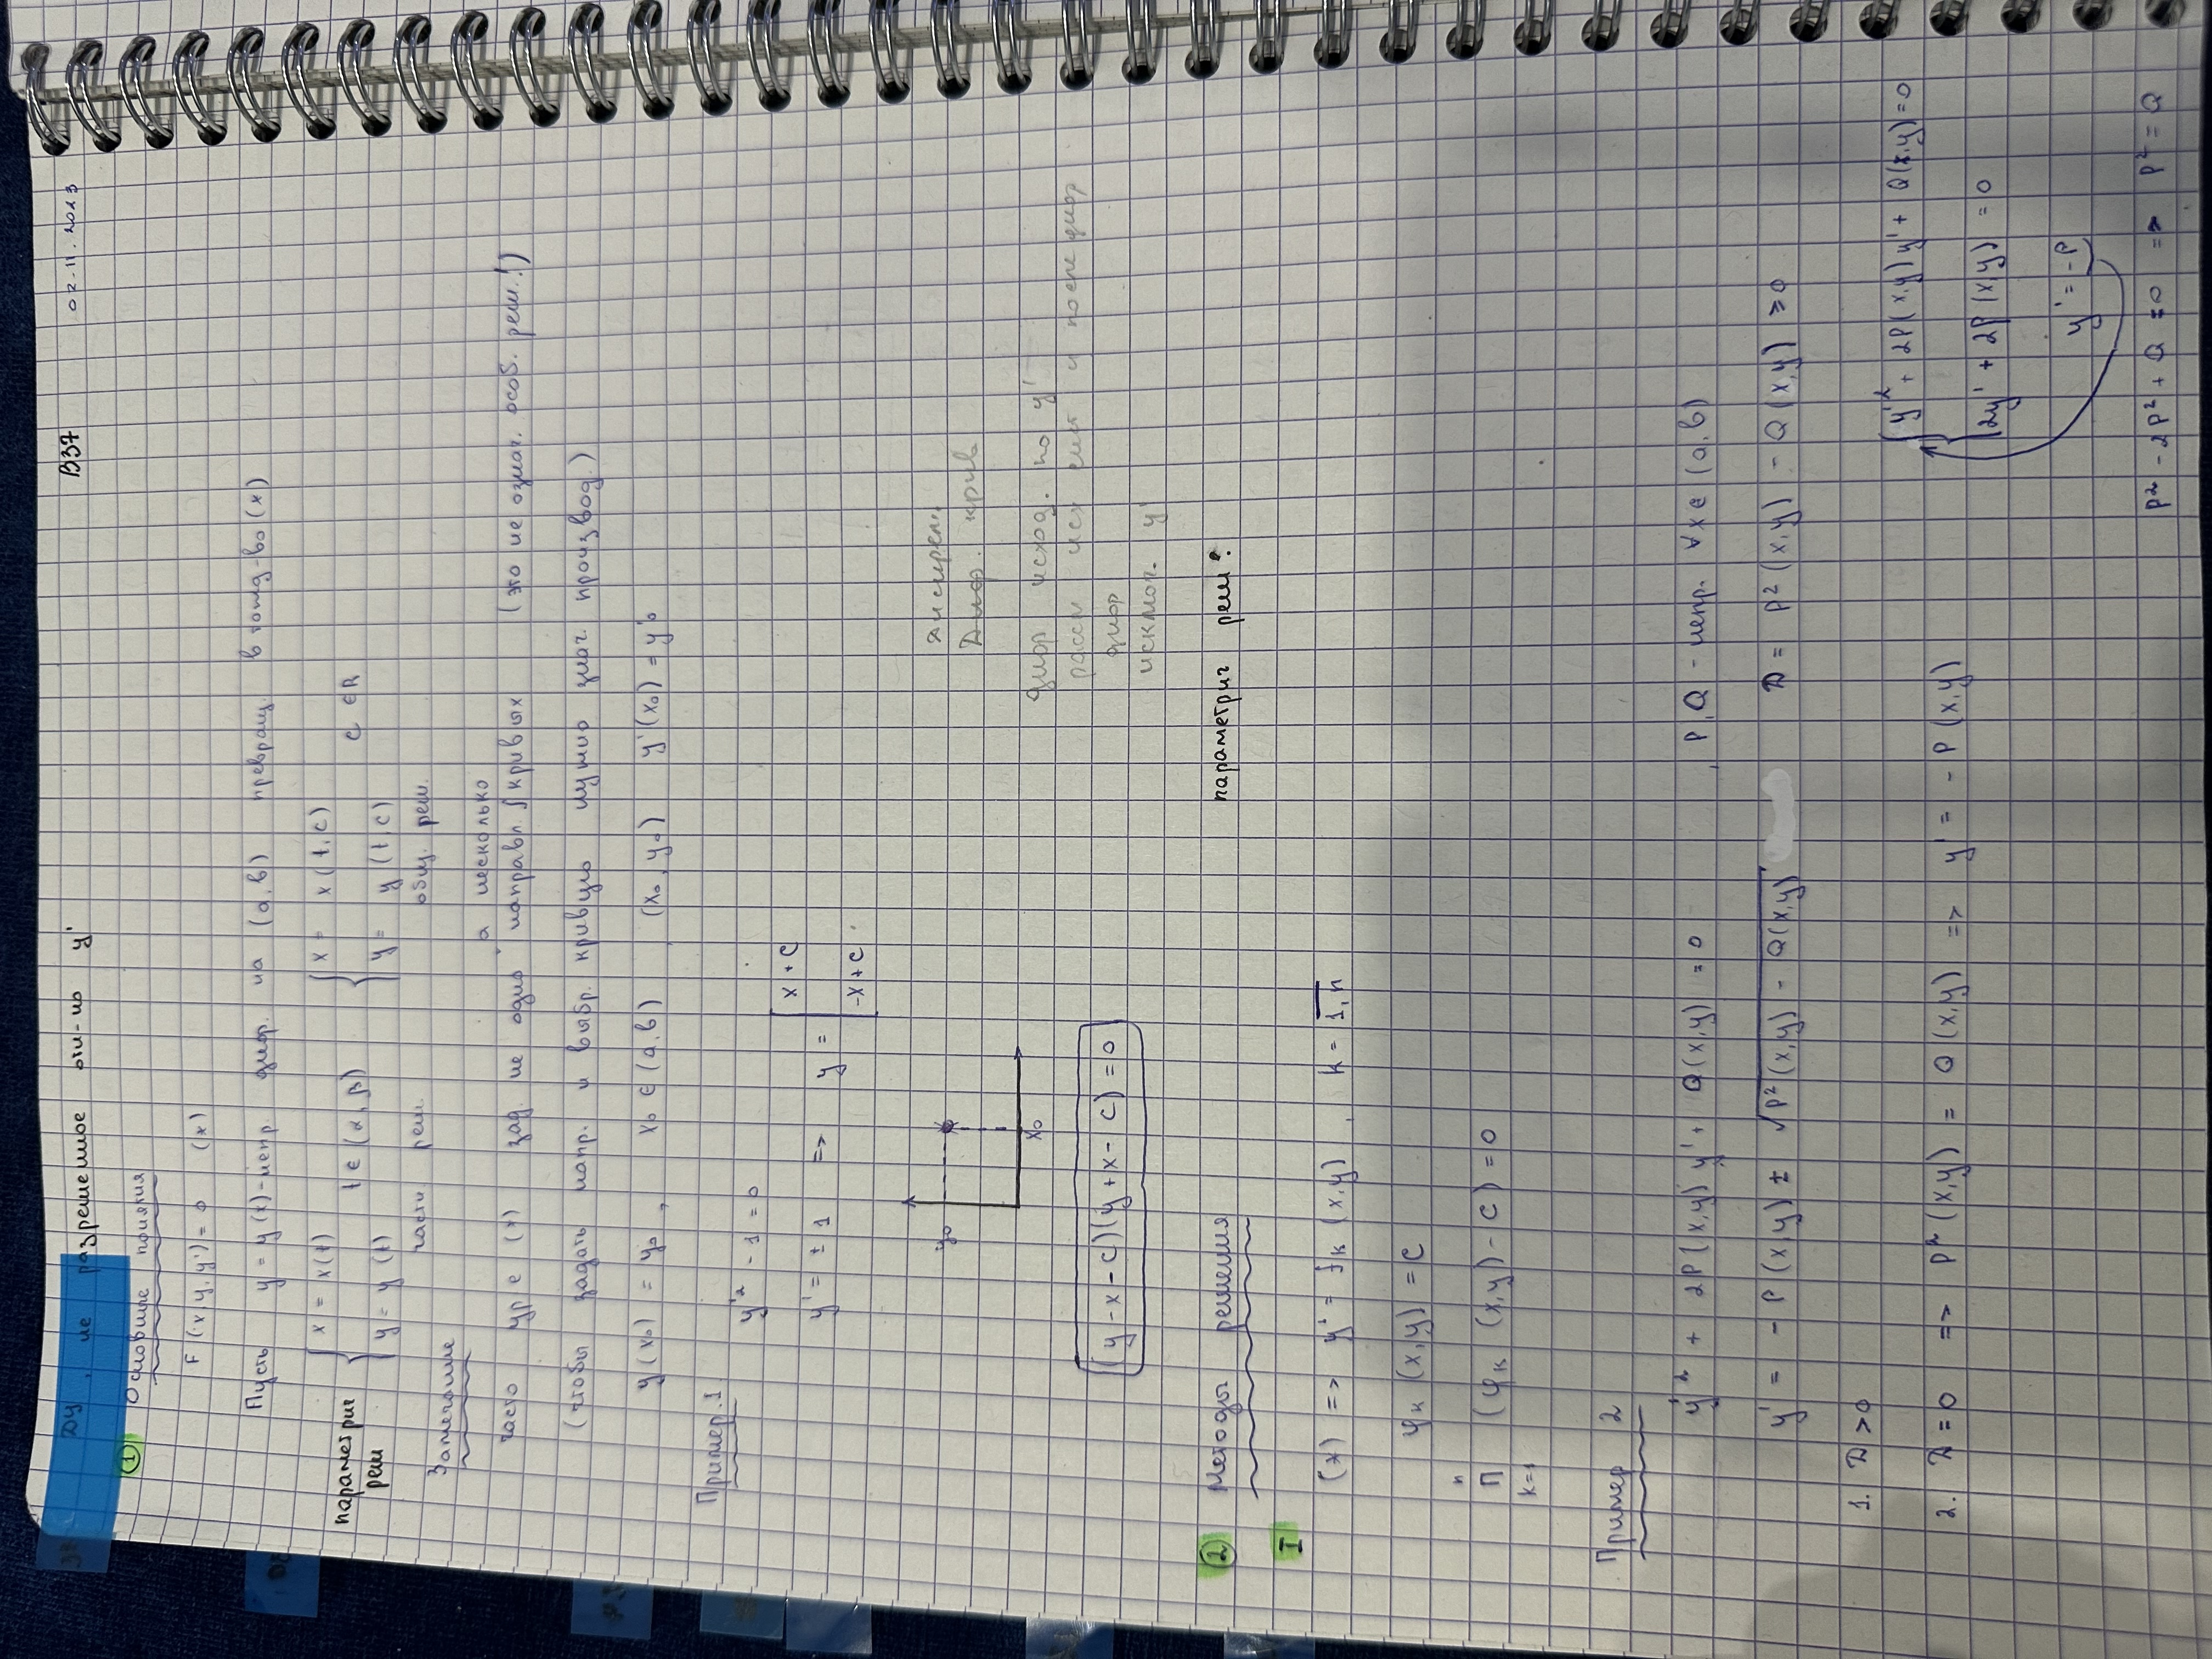 ДУ, не разрешенное отн-но y' В37 02.11.2023
① Основные понятия
F(x,y,y') = 0 (*)
Пусть y = y(x) - непр. диф. на (a,b) превращ. в тожд-во (*)
параметрич реш { x = x(t) y = y(t) t ∈ (α, β) { x = x(t,c) y = y(t,c) c ∈ R
частн. реш. общ. реш.
Замечание
а несколько
часто ур-е (*) зад. не одно направл. ∫ кривых (это не означ. особ. реш.!)
(чтобы задать напр. и выбр. кривую нужно знач. производ.)
y(x₀) = y₀, x₀ ∈ (a,b), (x₀, y₀) y'(x₀) = y'₀
Пример 1
y'² - 1 = 0
y' = ± 1 => y = [ x + C
-x + C
y₀
x₀
Дискрем.
Диф. крив
диф исход. по y'
рассм исх сист и после диф
диф
исключ. y'
(y - x - c)(y + x - c) = 0
② Методы решения параметрич реш?
I
(*) => y' = fₖ (x,y), k = 1,n
φₖ (x,y) = C
n
П (φₖ (x,y) - C) = 0
k=1
Пример 2
y'² + 2P(x,y) y' + Q(x,y) = 0, P,Q - непр. ∀x ∈ (a,b)
y' = - P(x,y) ± √P²(x,y) - Q(x,y) D = P²(x,y) - Q(x,y) ≥ 0
1. D > 0
2. D = 0 => P²(x,y) = Q(x,y) => y' = - P(x,y)
{ y'² + 2P(x,y) y' + Q(x,y) = 0
2y' + 2P(x,y) = 0
y' = -P
P² - 2P² + Q = 0 => P² = Q